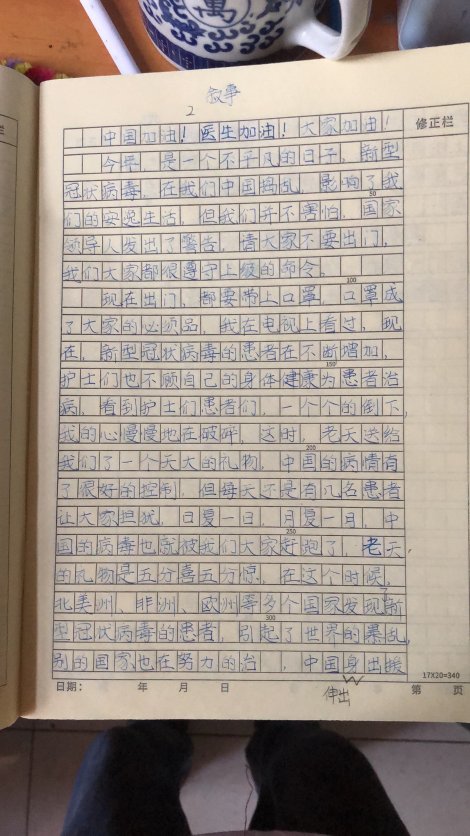 萬
叙事
2
修正栏
栏
中国加油！医生加油！大家加油！
今年，是一个不平凡的日子，新型
冠状病毒，在我们中国捣乱，影响了我
50
们的安逸生活，但我们并不害怕，国家
领导人发出了警告，请大家不要出门，
我们大家都很遵守上级的命令。
100
现在出门，都要带上口罩，口罩成
了大家的必须品，我在电视上看过，现
在，新型冠状病毒的患者在不断增加，
150
护士们也不顾自己的身体健康为患者治
病，看到护士们患者们，一个个的倒下，
我的心慢慢地在破碎，这时，老天送给
200
我们了一个天大的礼物，中国的病情有
了很好的控制，但每天还是有几名患者
让大家担忧，日复一日，月复一月，中
250
国的病毒也就被我们大家赶跑了，老天
的礼物是五分喜五分惊，在这个时候，
北美洲、非洲、欧洲等多个国家发现新
300
型冠状病毒的患者，引起了世界的暴乱，
别的国家也在努力的治，中国身出援
17X20=340
日期： 年 月 日
伸出
第 页